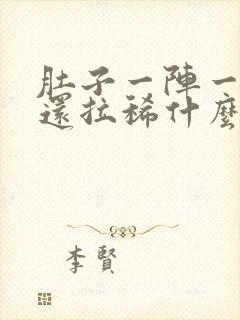 肚子一陣一
還拉稀什麼
李賢